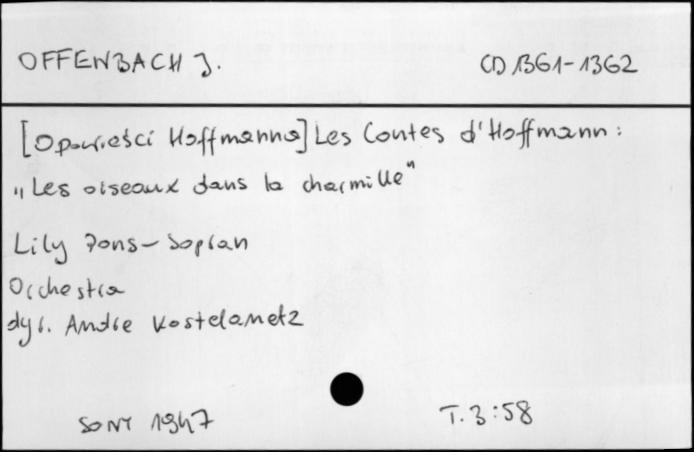 OFFENBACH J. CD 1361-1362
[Opowieści Hoffmanna] Les Contes d'Hoffmann:
„Les oiseaux dans la charmille"
Lily Pons - sopran
Orchestra
dyr. Andre Kostelanetz
SONY 1947 T. 3:58